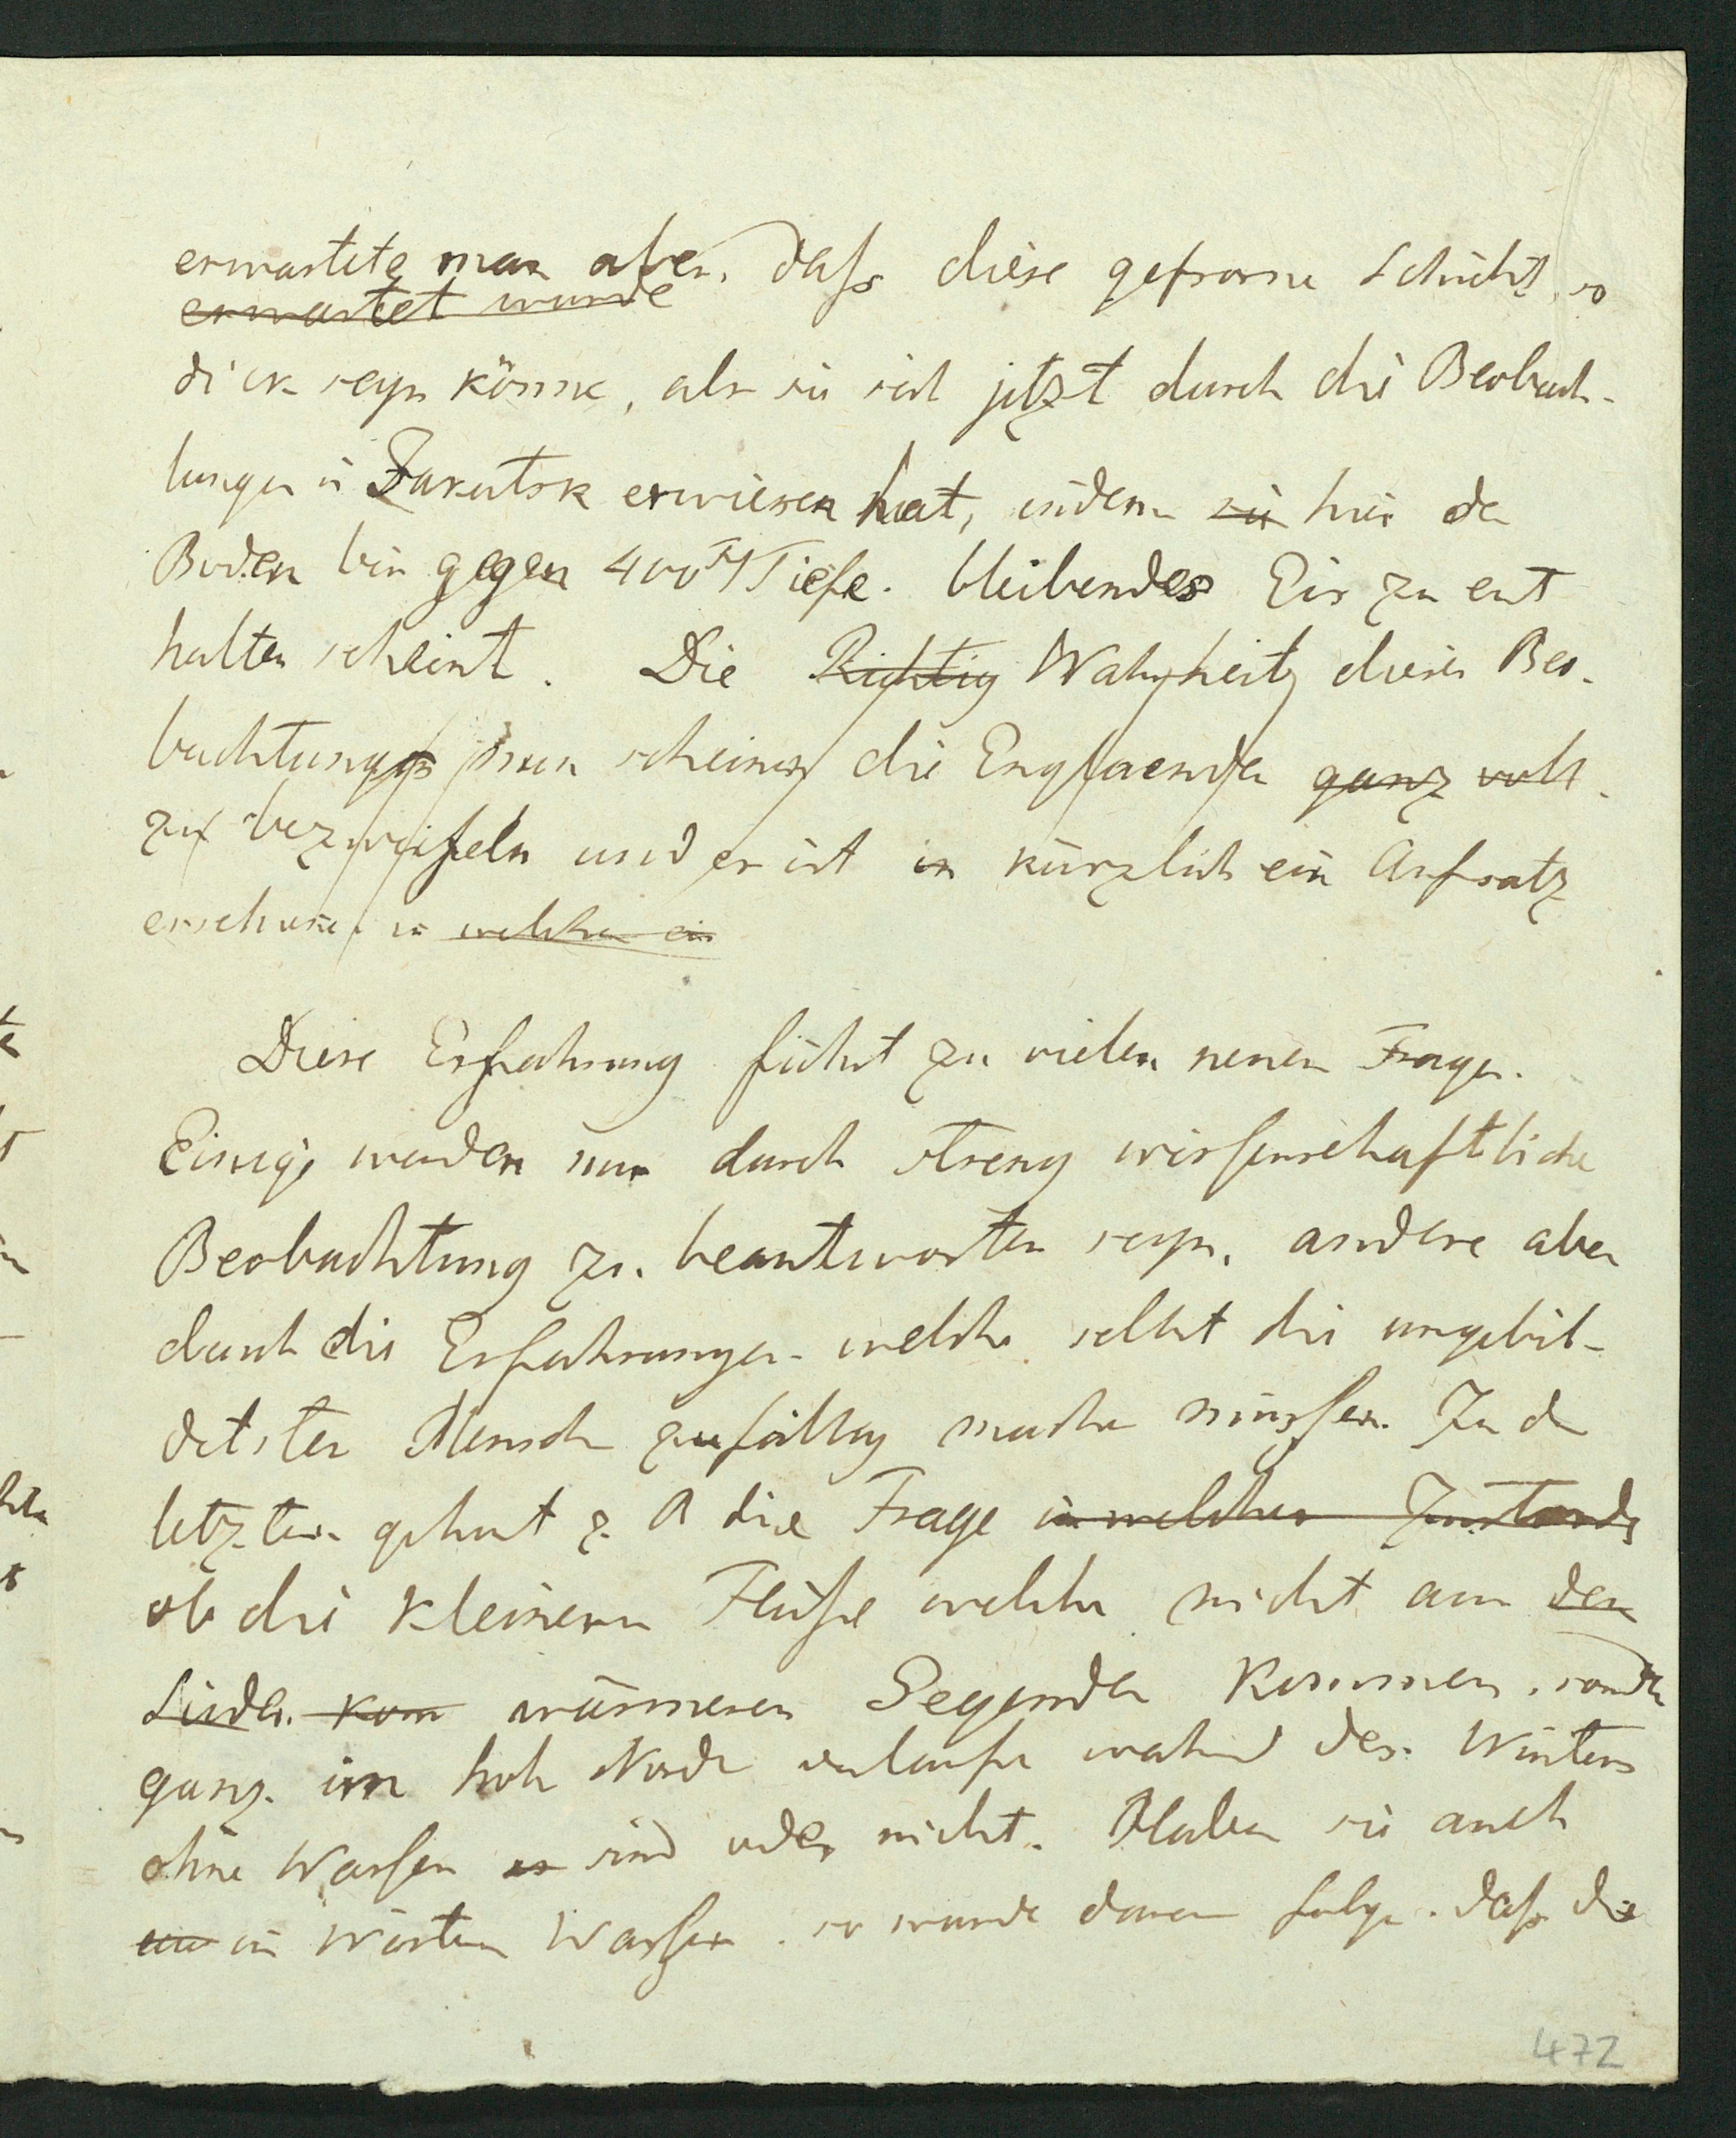 erwartete man aber, daſs diese gefrorne Schicht so
erwartet wurde
dick seyn könne, als sie sich jetzt durch die Beobach-
tungen in Jakutsk erwiesen hat, indem sie hier der
Boden bis gegen 400 F Tiefe bleibendes Eis zu ent
halten scheint. Die Richtig Wahrheit dieser Beo-
bachtung nun scheinen die Englaender ganz voll
zu bezweifeln und es ist in kürzlich ein Aufsatz
erschienen in welchem ein
Diese Erfahrung führt zu vielen neuen Fragen.
Einige werden nur durch streng wiſsenschaftliche
Beobachtung zu beantworten seyn, andere aber
durch die Erfahrungen welche selbst die ungebil-
detsten Menschen zufällig machen müſsen. Zu den
letztern gehort z. B die Frage in welchem Zustande
ob die kleinern Flüſse welche nicht aus den
Süden kom wärmeren Gegenden kommen, sondern
ganz im hohen Norden verlaufen wahrend des Winters
ohne Waſser es sind oder nicht. Haben sie auch
im Winter Waſser, so wurde daraus folgen, daſs die
472